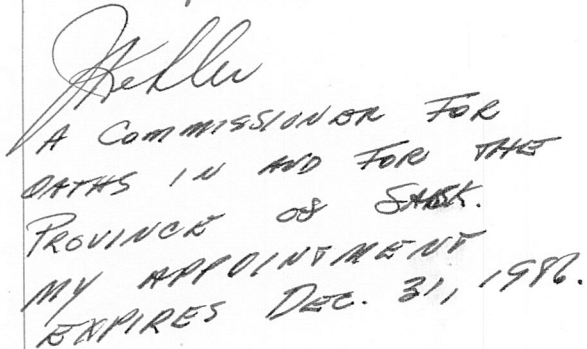 A COMMISSIONER FOR
OATHS IN AND FOR THE
PROVINCE OF SASK.
MY APPOINTMENT
EXPIRES DEC. 31, 1986.